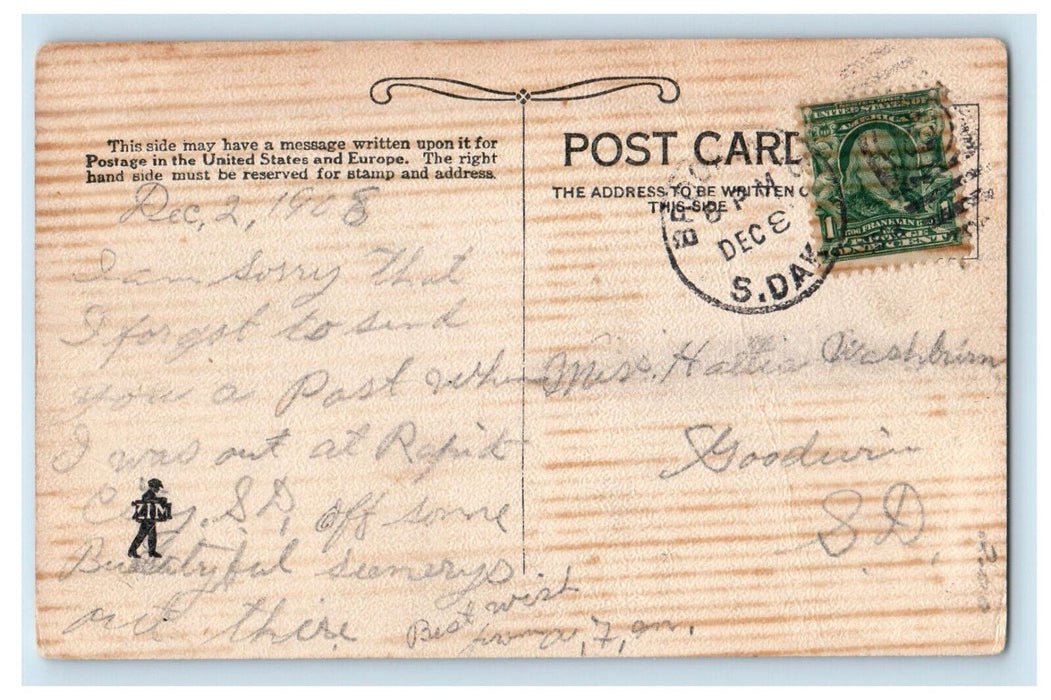 This side may have a message written upon it for
Postage in the United States and Europe. The right
hand side must be reserved for stamp and address.
Dec, 2, 1908
I am sorry that
I forgot to send
you a Post when
I was out at Rapid
City, S.D, off some
Buautyful scenerys
out there
Best wish
from a, F, m.
ZIM
POST CARD
THE ADDRESS TO BE WRITTEN O
THIS SIDE
8 PM
DEC
S. DAK.
UNITED STATES OF
AMERICA
FRANKLIN
1 1
ONE CENT
Miss. Hattie Washburn
Goodwin
S D,